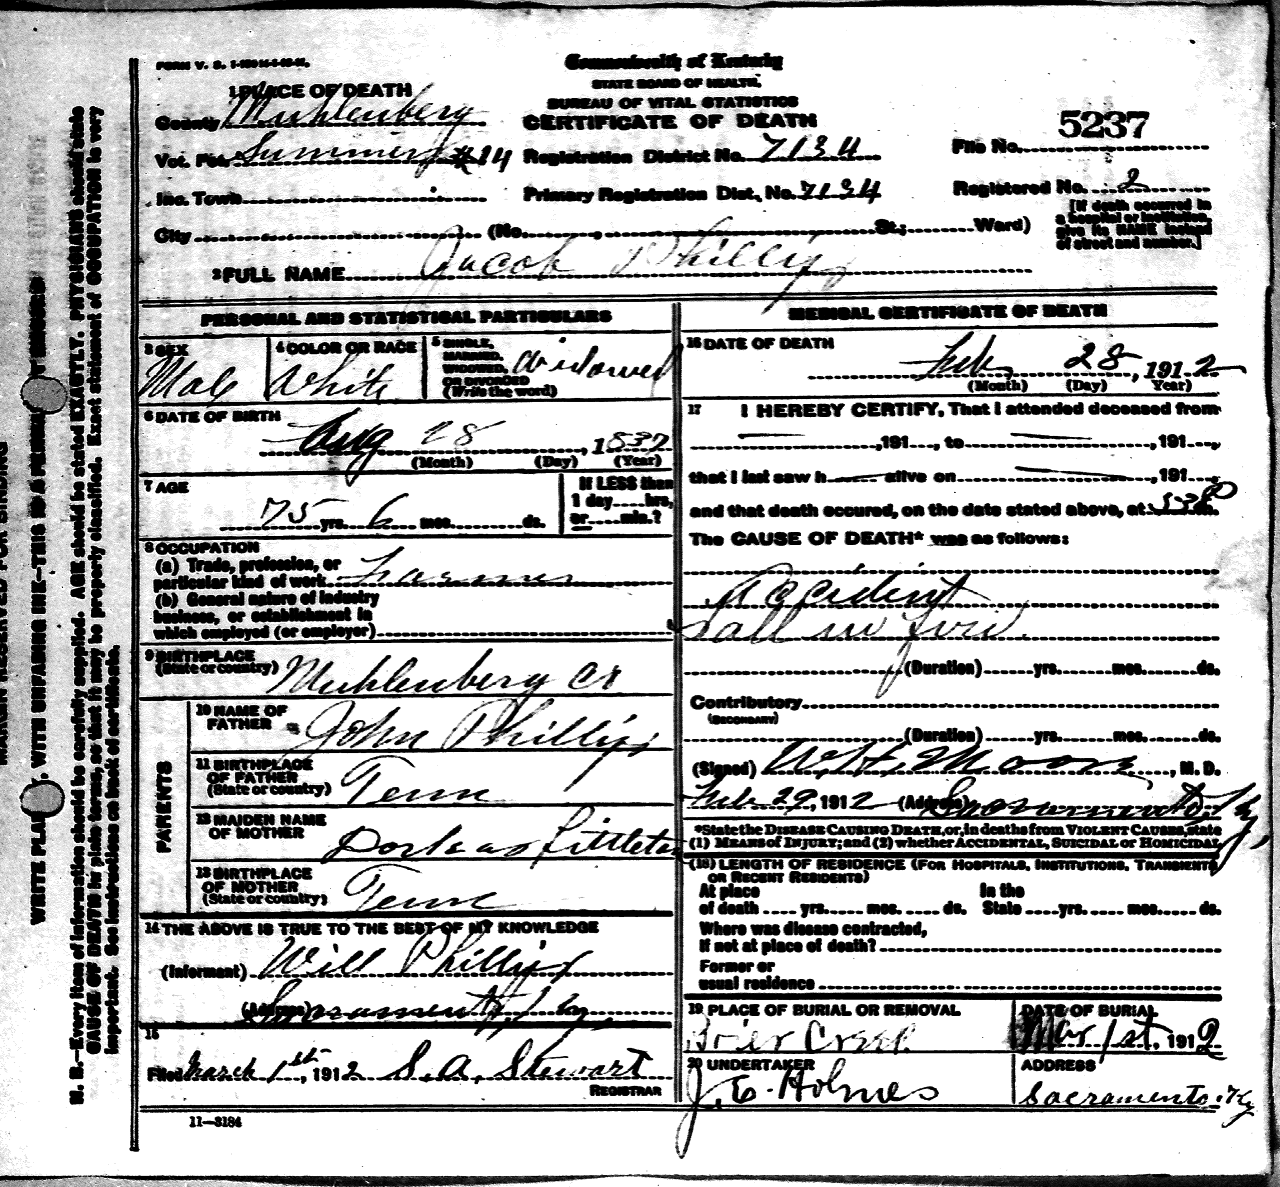 Commonwealth of Kentucky
STATE BOARD OF HEALTH.
BUREAU OF VITAL STATISTICS
CERTIFICATE OF DEATH
FORM V. S.
1 PLACE OF DEATH
County Muhlenberg
Vot. Pct. Summers #14
Inc. Town
Registration District No. 7134
Primary Registration Dist. No. 7134
File No. 5237
Registered No. 2
[If death occurred in a hospital or institution, give its NAME instead of street and number.]
City (No. St.; Ward)
2 FULL NAME Jacob Phillips
PERSONAL AND STATISTICAL PARTICULARS
3 SEX Male
4 COLOR OR RACE White
5 SINGLE, MARRIED, WIDOWED, OR DIVORCED (Write the word) Widowed
6 DATE OF BIRTH
Aug 28, 1837
(Month) (Day) (Year)
7 AGE
75 yrs. 6 mos. ds.
If LESS than 1 day hrs, or min.?
8 OCCUPATION
(a) Trade, profession, or particular kind of work Farmer
(b) General nature of industry business, or establishment in which employed (or employer)
9 BIRTHPLACE (State or country) Muhlenberg Co
PARENTS
10 NAME OF FATHER John Phillips
11 BIRTHPLACE OF FATHER (State or country) Tenn
12 MAIDEN NAME OF MOTHER Dorkas Littleton
13 BIRTHPLACE OF MOTHER (State or country) Tenn
14 THE ABOVE IS TRUE TO THE BEST OF MY KNOWLEDGE
(Informant) Will Phillips
(Address) Sacramento, Ky
15
Filed March 1st, 1912 S. A. Stewart
REGISTRAR
11—3184
MEDICAL CERTIFICATE OF DEATH
16 DATE OF DEATH
Feb 28, 1912
(Month) (Day) (Year)
17 I HEREBY CERTIFY, That I attended deceased from
, 191 , to , 191 ,
that I last saw h alive on , 191 ,
and that death occured, on the date stated above, at 5:30 P m.
The CAUSE OF DEATH* was as follows:
Accident
Fall in fire.
(Duration) yrs. mos. ds.
Contributory
(SECONDARY)
(Duration) yrs. mos. ds.
(Signed) W. H. Moore, M. D.
Feb 29, 1912 (Address) Sacramento, Ky
*State the DISEASE CAUSING DEATH, or, in deaths from VIOLENT CAUSES, state
(1) MEANS OF INJURY; and (2) whether ACCIDENTAL, SUICIDAL or HOMICIDAL
(18) LENGTH OF RESIDENCE (FOR HOSPITALS, INSTITUTIONS, TRANSIENTS OR RECENT RESIDENTS)
At place of death yrs. mos. ds. In the State yrs. mos. ds.
Where was disease contracted,
If not at place of death?
Former or
usual residence
19 PLACE OF BURIAL OR REMOVAL
Brier Creek
DATE OF BURIAL
Mar 1st, 1912
20 UNDERTAKER
J. E. Holmes
ADDRESS
Sacramento Ky
N. B.—Every item of information should be carefully supplied. AGE should be stated EXACTLY. PHYSICIANS should state
CAUSE OF DEATH in plain terms, so that it may be properly classified. Exact statement of OCCUPATION is very
important. See instructions on back of certificate.
WITH UNFADING INK—THIS IS A
MARGIN RESERVED FOR BINDING